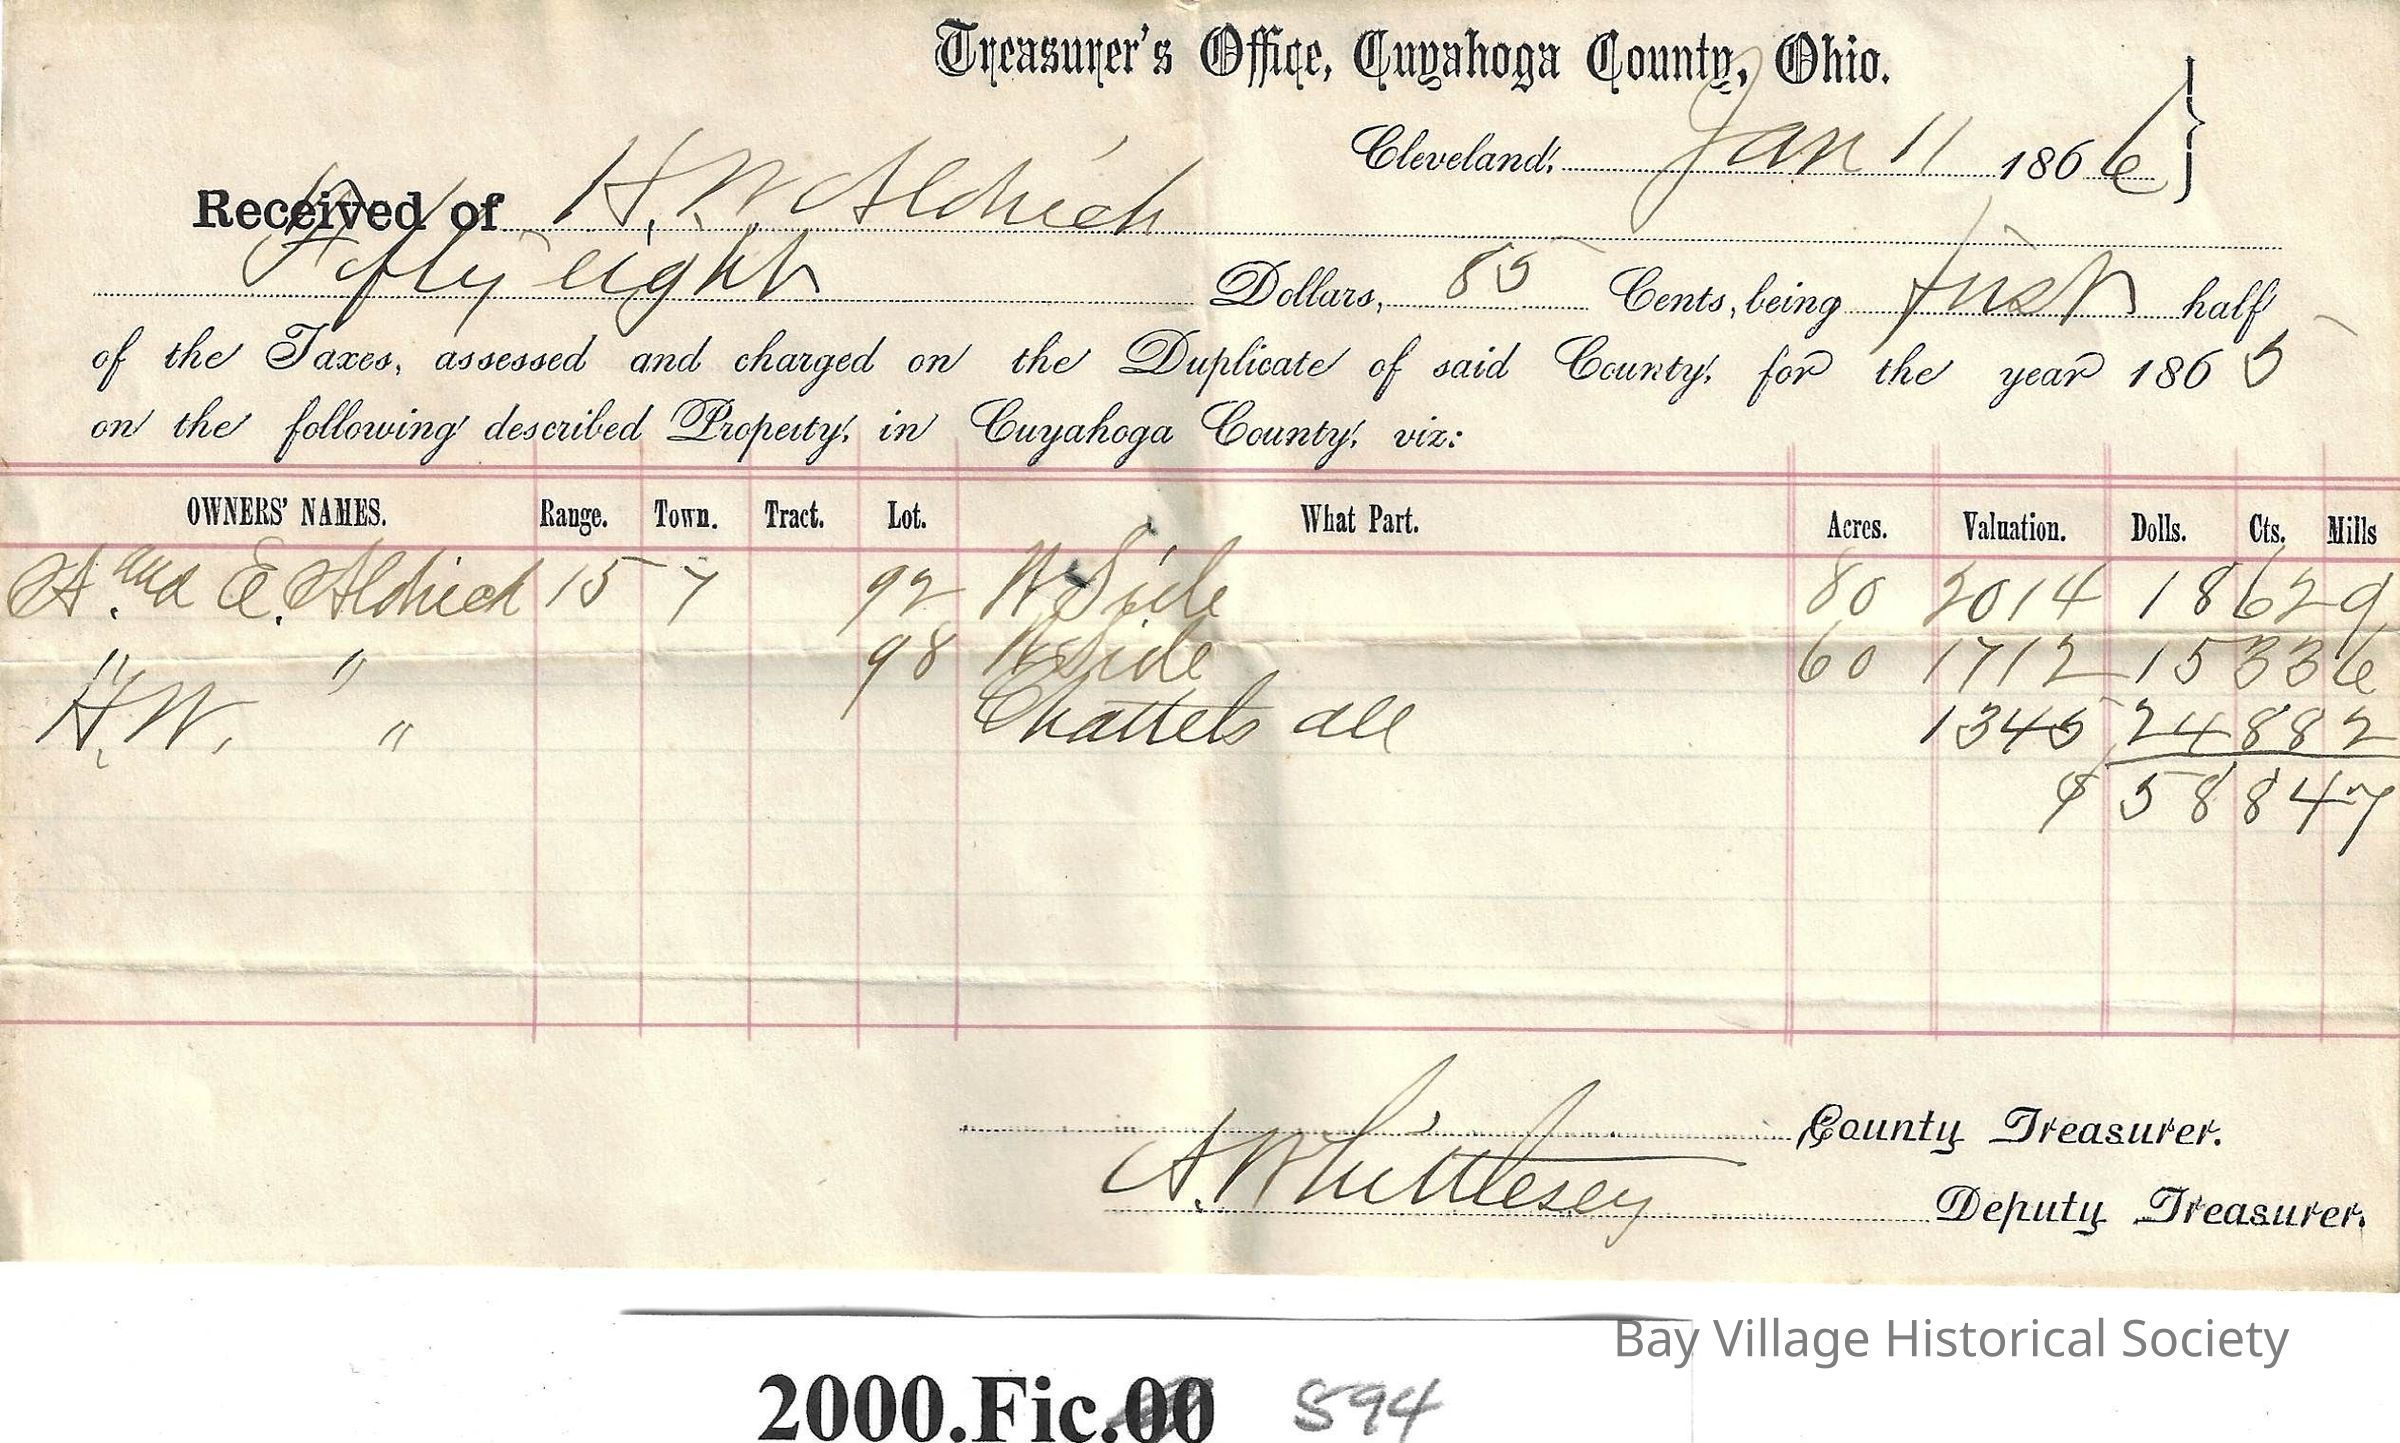 Treasurer's Office, Cuyahoga County, Ohio.
Cleveland, Jan 11 1866
Received of H. W. Aldrich
Fifty eight Dollars, 85 Cents, being first half
of the Taxes, assessed and charged on the Duplicate of said County, for the year 1865
on the following described Property, in Cuyahoga County, viz:
OWNERS' NAMES. Range. Town. Tract. Lot. What Part. Acres. Valuation. Dolls. Cts. Mills
A. and E. Aldrich 15 7 92 W Side 80 2014 18 62 9
" " 98 W Side 60 1712 15 33 6
H. W. " Chattels all 1345 24 88 2
$ 58 84 7
County Treasurer.
A. Whittlesey Deputy Treasurer.
Bay Village Historical Society
2000.Fic.00 594